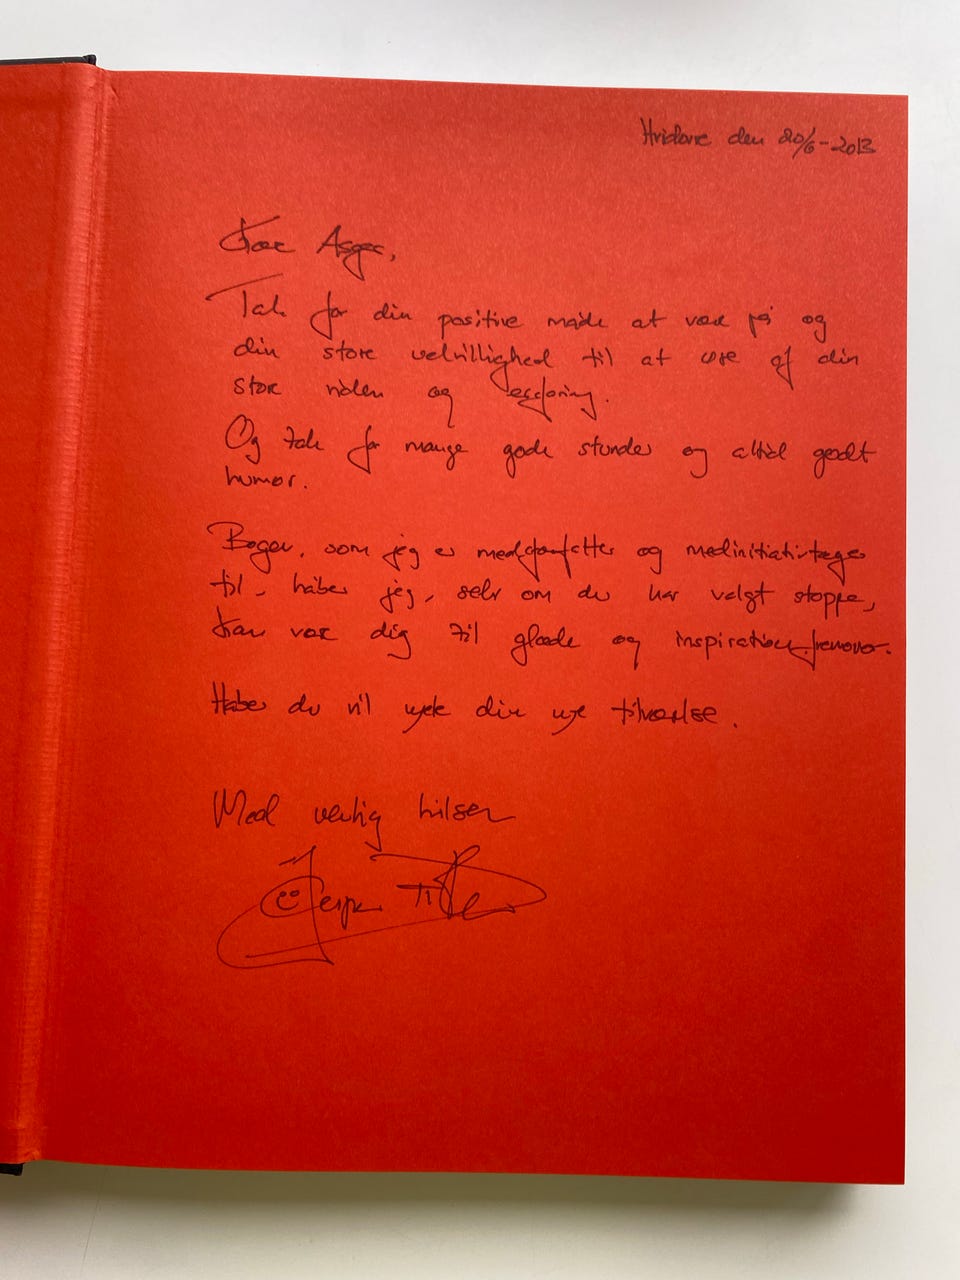 Hvidovre den 20/6-2013
Kære Asger,
Tak for din positive måde at være på og
din store velvillighed til at øse af din
store viden og erfaring.
Og tak for mange gode stunder og altid godt
humør.
Bogen, som jeg er medforfatter og medinitiativtager
til, håber jeg, selv om du har valgt stoppe,
kan være dig til glæde og inspiration fremover.
Håber du vil nyde din nye tilværelse.
Med venlig hilsen
Jesper